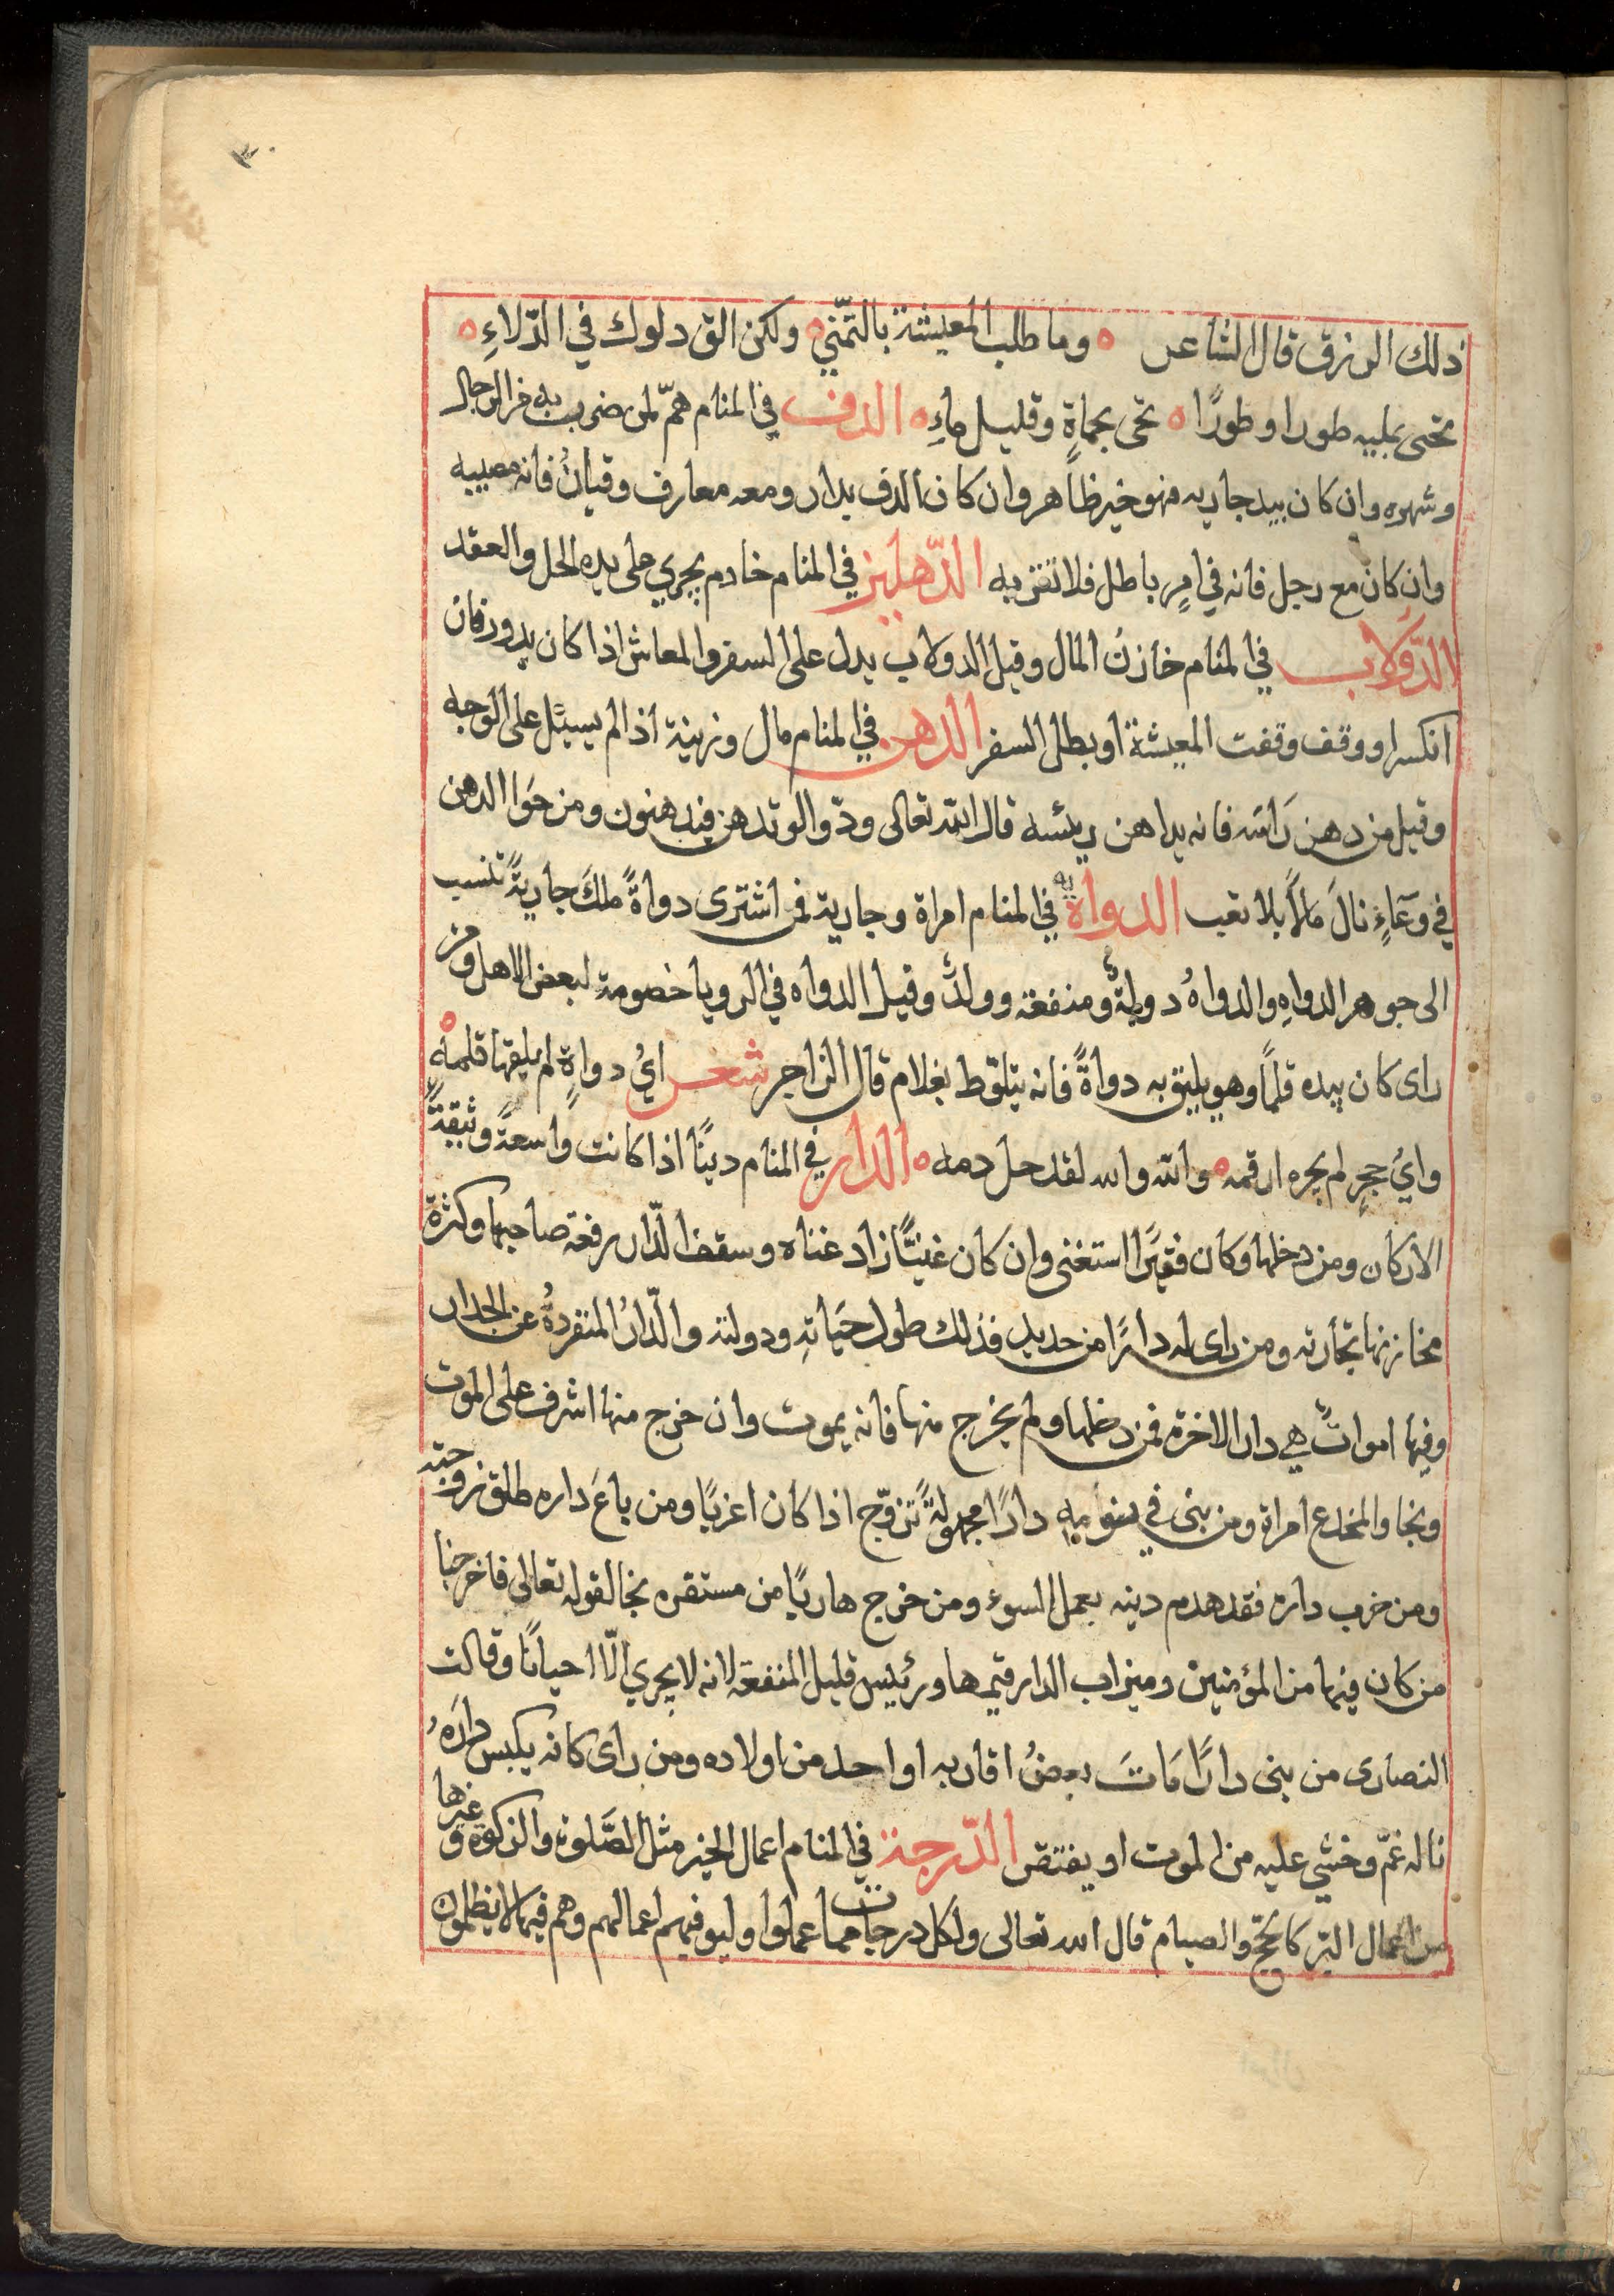 ذلك الرزق قال الشاعر ه وما طلب المعيشة بالتمنّي ه ولكن الق دلوك في الدّلاءِ ه
تجئ بمليه طورا وطورًا ه تجئ بحماةٍ وقليل ماءٍ ه الدف في المنام همّ لمن ضرب به من الرجال
وشهره وان كان بيد جاريه فهو خير ظاهر وان كان الدف بدار ومعه معارف وقيانٌ فانه مصيبه
وان كان مع رجل فانه في امرٍ باطل فلا تقربه الدّهليز في المنام خادم يجري على يده الحل والعقد
الدّولاب في المنام خازنُ المال وقيل الدولاب يدل على السفر والمعاش اذا كان يدور فان
انكسر او وقف وقفت المعيشة او بطل السفر الدهن في المنام مال وزينة اذا لم يسيّل على الوجه
وقيل من دهن رَاسَه فانه يداهن ريئسه قال الله تعالى ودّوا لو تدهن فيدهنون ومن حوَا الدهن
في وعَاءٍ نالَ مَالاً بلا تعب الدواة في المنام امراة وجارية فمن اشترى دواةً ملكَ جاريةً تنسب
الى جوهر الدواهِ والدواهُ دولةٌ ومنفعة وولدٌ وقيل الدواه في الرويا خصومة لبعض الاهل ومن
راى كان بيده قلماً وهو يليق به دواةً فانه يتلوّط بغلام قال الزاجر شعر ايُ دواةٍ لم يلقها قلمه ه
وايُ حجرٍ لم يجره ارقمه ه والله والله لقد حل دمه ه الدار في المنام دينًا اذا كانت واسعةً وثيقةً
الاركان ومن دخلها وكان فقيرًا استغنى وان كان غنيًّا زاد غناه وسقف الدّار رفعة صاحبها وكثرة
مخازنها تجارته ومن راى له دارًا من حديد فذلك طول حيَاتهِ ودولته والدّارُ المنفردةُ عن الجدار
وفيها امواتٌ هي دار الاخرة فمن دخلها ولم يخرج منها فانه يموت وان خرج منها اشرف على الموت
ونجا والمخدع امراة ومن بنى في نومه دارًا مجهولةً تزوّج اذا كان اعزبًا ومن باعَ داره طلق زوجته
ومن خرب داره فقد هدم دينه بعمل السوء ومن خرج هاربًا من مستقره نجا لقوله تعالى فاخرجنا
من كان فيها من المؤمنين وميزاب الدار قيمها ورئيس قليل المنفعة لانه لا يجري الّا احيانًا وقالت
النصارى من بنى دارًا مَاتَ بعضُ اقاربه او احد من اولاده ومن راى كانه يكبس دارَهُ
ناله غمّ وخشي عليه من الموت او يفتقر الدّرجة في المنام اعمال الخير مثل الصَّلوة والزكوة وغيرها
من اعمال البرّ كالحجّ والصيام قال الله تعالى ولكل درجات مما عملوا وليوفيهم اعمالهم وهم فيها لا يظلمون